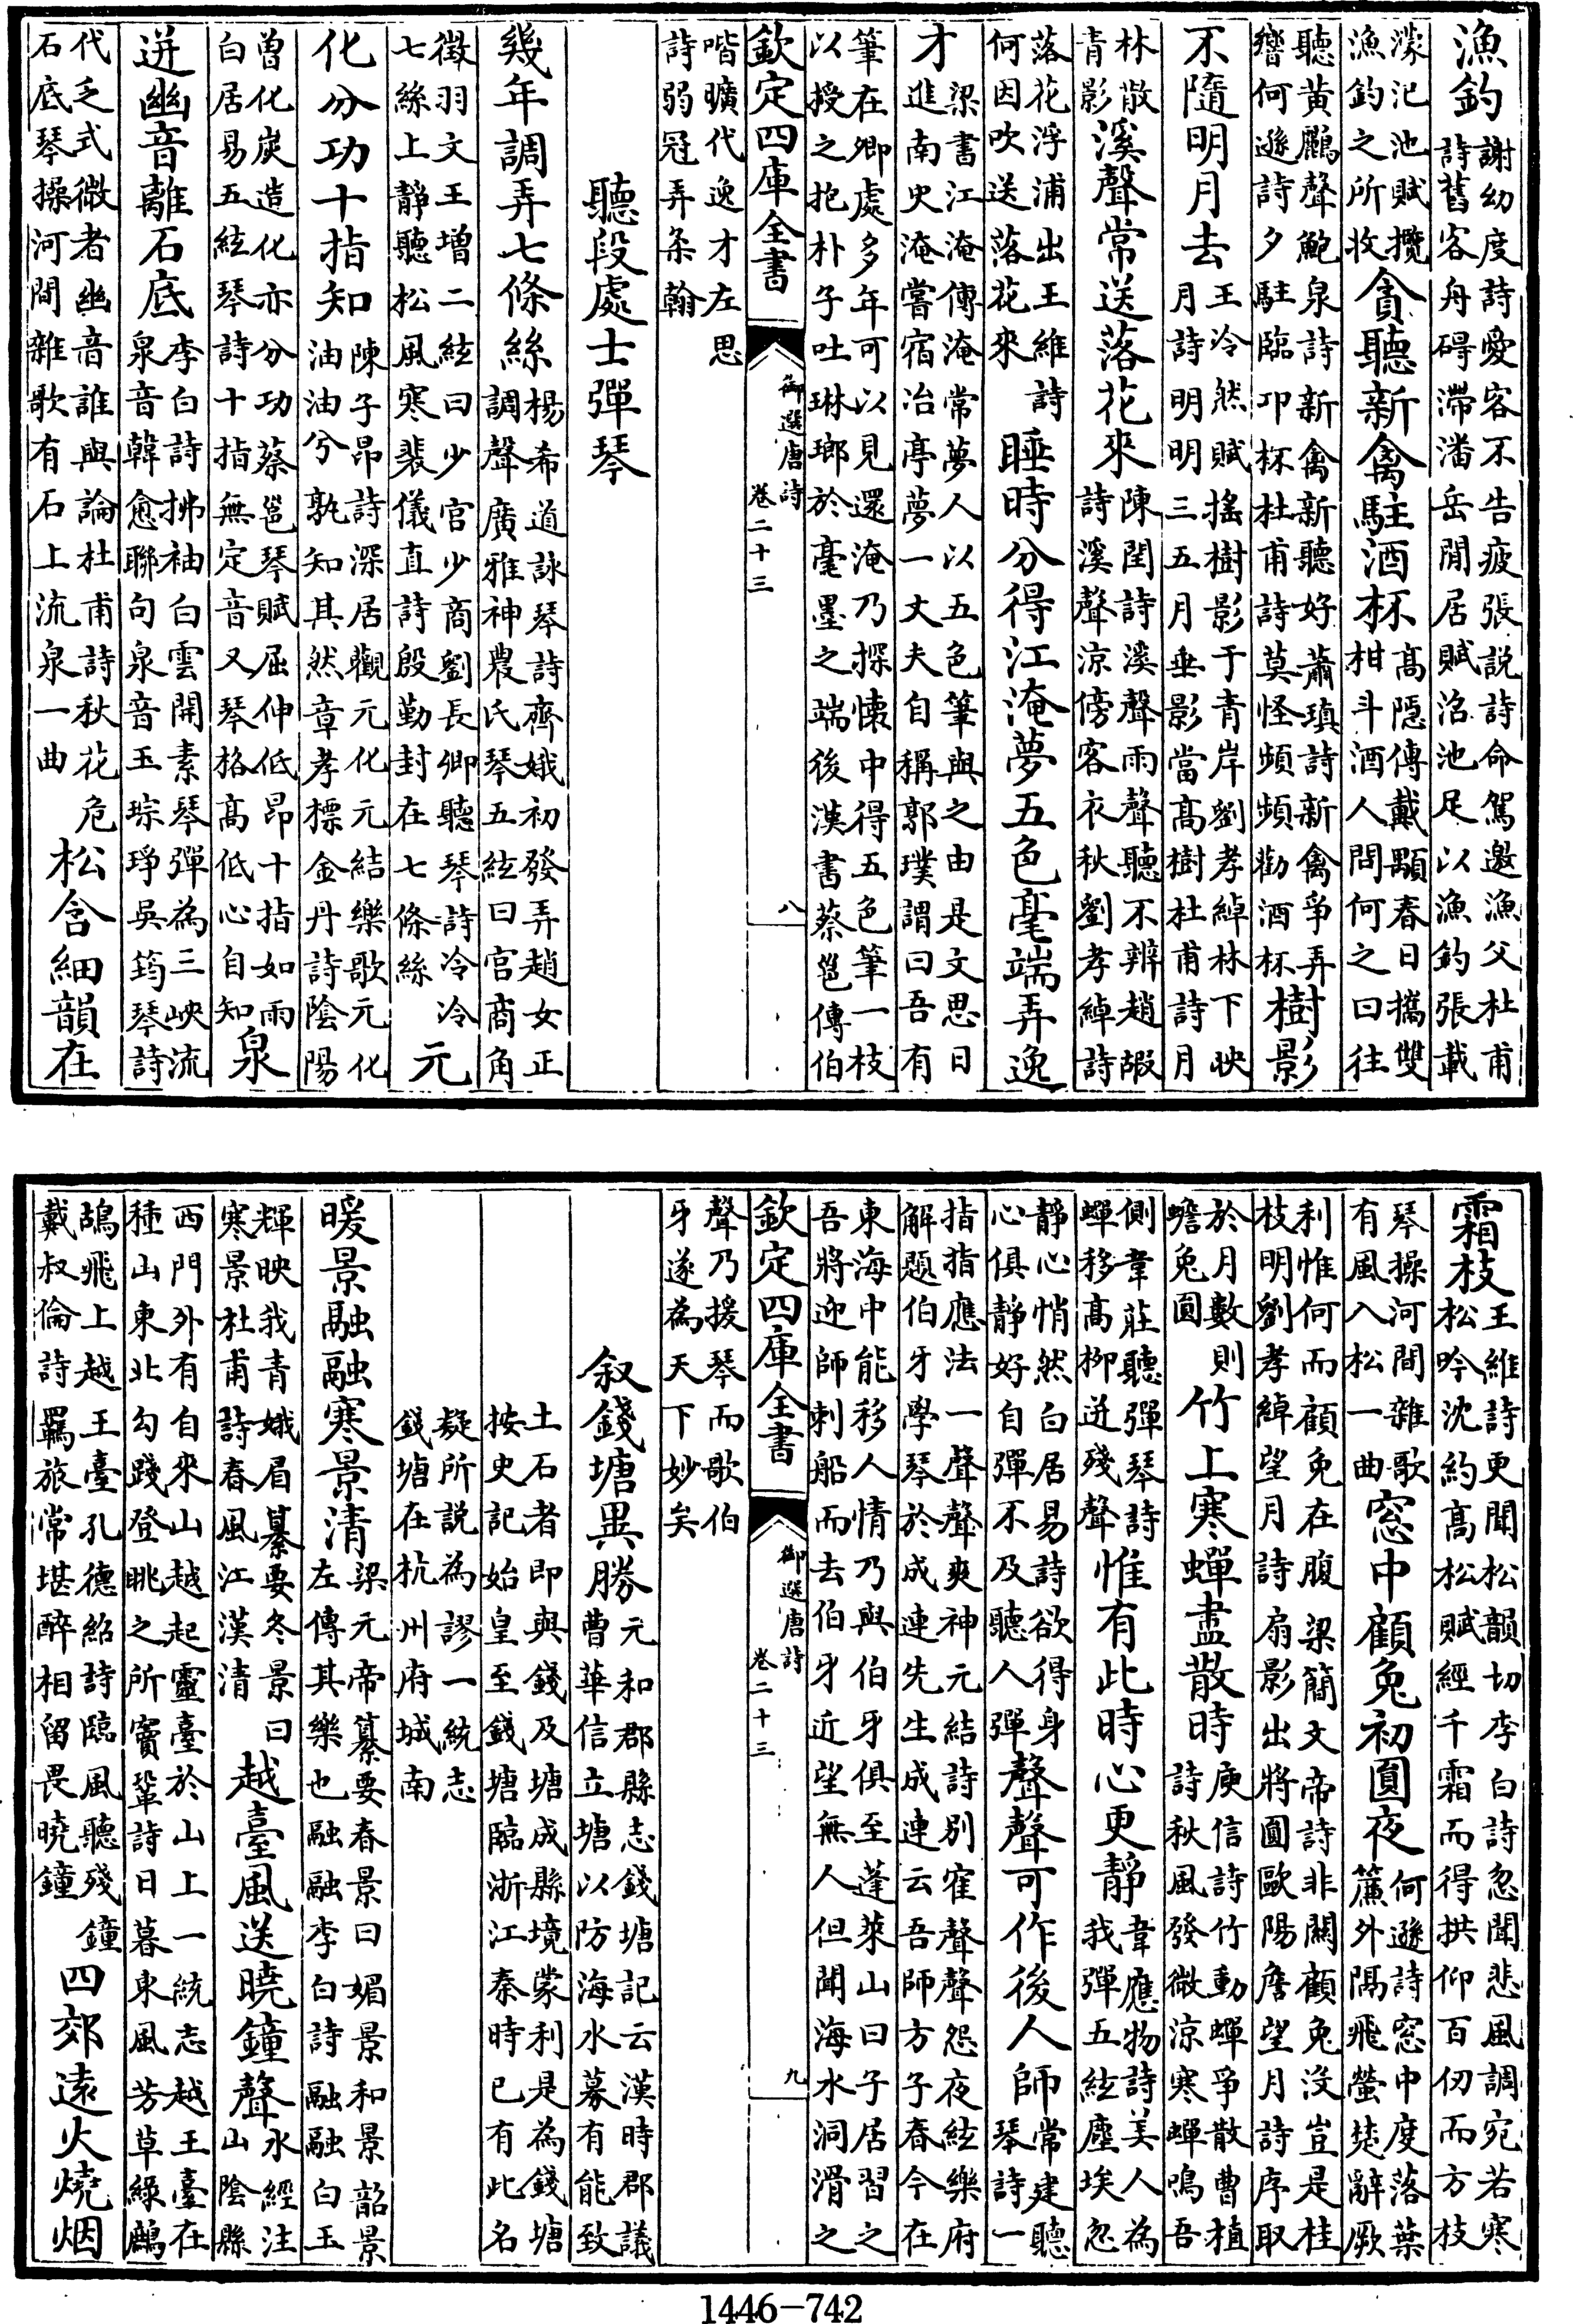 漁釣謝幼度詩愛客不告疲張説詩命駕邀漁父杜甫詩舊客舟碍滯潘岳閒居賦沿池足以漁釣張載
濛汜池賦攬漁釣之所收貪聽新禽駐酒杯高隱傳戴顒春日攜雙柑斗酒人問何之曰往
聽黄鸝聲鮑泉詩新禽新聽好蕭瑱詩新禽爭弄響何遜詩夕駐臨卭杯杜甫詩莫怪頻頻勸酒杯樹影
不隨明月去王泠然賦搖樹影于青岸劉孝綽林下映月詩明明三五月垂影當高樹杜甫詩月
林散青影溪聲常送落花來陳閏詩溪聲雨聲聽不辨趙嘏詩溪聲凉傍客衣秋劉孝綽詩
落花浮浦出王維詩何因吹送落花來睡時分得江淹夢五色毫端弄逸
才梁書江淹傳淹常夢人以五色筆與之由是文思日進南史淹嘗宿冶亭夢一丈夫自稱郭璞謂曰吾有
筆在卿處多年可以見還淹乃探懷中得五色筆一枝以授之抱朴子吐琳瑯於毫墨之端後漢書蔡邕傳伯
欽定四庫全書 御選唐詩 卷二十三 八
喈曠代逸才左思詩弱冠弄柔翰
聽段處士彈琴
幾年調弄七條絲楊希道詠琴詩齊娥初發弄趙女正調聲廣雅神農氏琴五絃曰宫商角
徵羽文王增二絃曰少宫少商劉長卿聽琴詩泠泠七絲上靜聽松風寒裴儀直詩殷勤封在七條絲元
化分功十指知陳子昻詩深居觀元化元結樂歌元化油油兮孰知其然章孝標金丹詩陰陽
曽化炭造化亦分功蔡邕琴賦屈伸低昻十指如雨白居易五絃琴詩十指無定音又琴格高低心自知泉
迸幽音離石底李白詩拂袖白雲開素琴彈為三峽流泉音韓愈聯句泉音玉琮琤吳筠琴詩
代乏式微者幽音誰與論杜甫詩秋花危石底琴操河間雜歌有石上流泉一曲松含細韻在
霜枝王維詩更聞松韻切李白詩忽聞悲風調宛若寒松吟沈約高松賦經千霜而得拱仰百仞而方枝
琴操河間雜歌有風入松一曲窓中顧兔初圓夜何遜詩窓中度落葉簾外隔飛螢楚辭厥
利惟何而顧兔在腹梁簡文帝詩非關顧兔没豈是桂枝明劉孝綽望月詩扇影出將圓歐陽詹望月詩序取
於月數則蟾兔圓竹上寒蟬盡散時庾信詩竹動蟬爭散曹植詩秋風發微凉寒蟬鳴吾
側韋莊聽彈琴詩蟬移高柳迸殘聲惟有此時心更靜韋應物詩美人為我彈五絃塵埃忽
靜心悄然白居易詩欲得身心俱靜好自彈不及聽人彈聲聲可作後人師常建聽琴詩一
指指應法一聲聲爽神元結詩別寉聲聲怨夜絃樂府解題伯牙學琴於成連先生成連云吾師方子春今在
東海中能移人情乃與伯牙俱至蓬萊山曰子居習之吾將迎師刺船而去伯牙近望無人但聞海水洞滑之
欽定四庫全書 御選唐詩 卷二十三 九
聲乃援琴而歌伯牙遂為天下妙矣
叙錢塘異勝元和郡縣志錢塘記云漢時郡議曹華信立塘以防海水募有能致
土石者即與錢及塘成縣境蒙利是為錢塘按史記始皇至錢塘臨浙江秦時已有此名
疑所説為謬一統志錢塘在杭州府城南
暖景融融寒景清梁元帝纂要春景曰媚景和景韶景左傳其樂也融融李白詩融融白玉
輝映我青娥眉纂要冬景曰寒景杜甫詩春風江漢清越臺風送曉鐘聲水經注山陰縣
西門外有自來山越起靈臺於山上一統志越王臺在種山東北勾踐登眺之所竇鞏詩日暮東風芳草綠鷓
鴣飛上越王臺孔德紹詩臨風聽殘鐘戴叔倫詩羈旅常堪醉相留畏曉鐘四郊遠火燒烟
1446—742